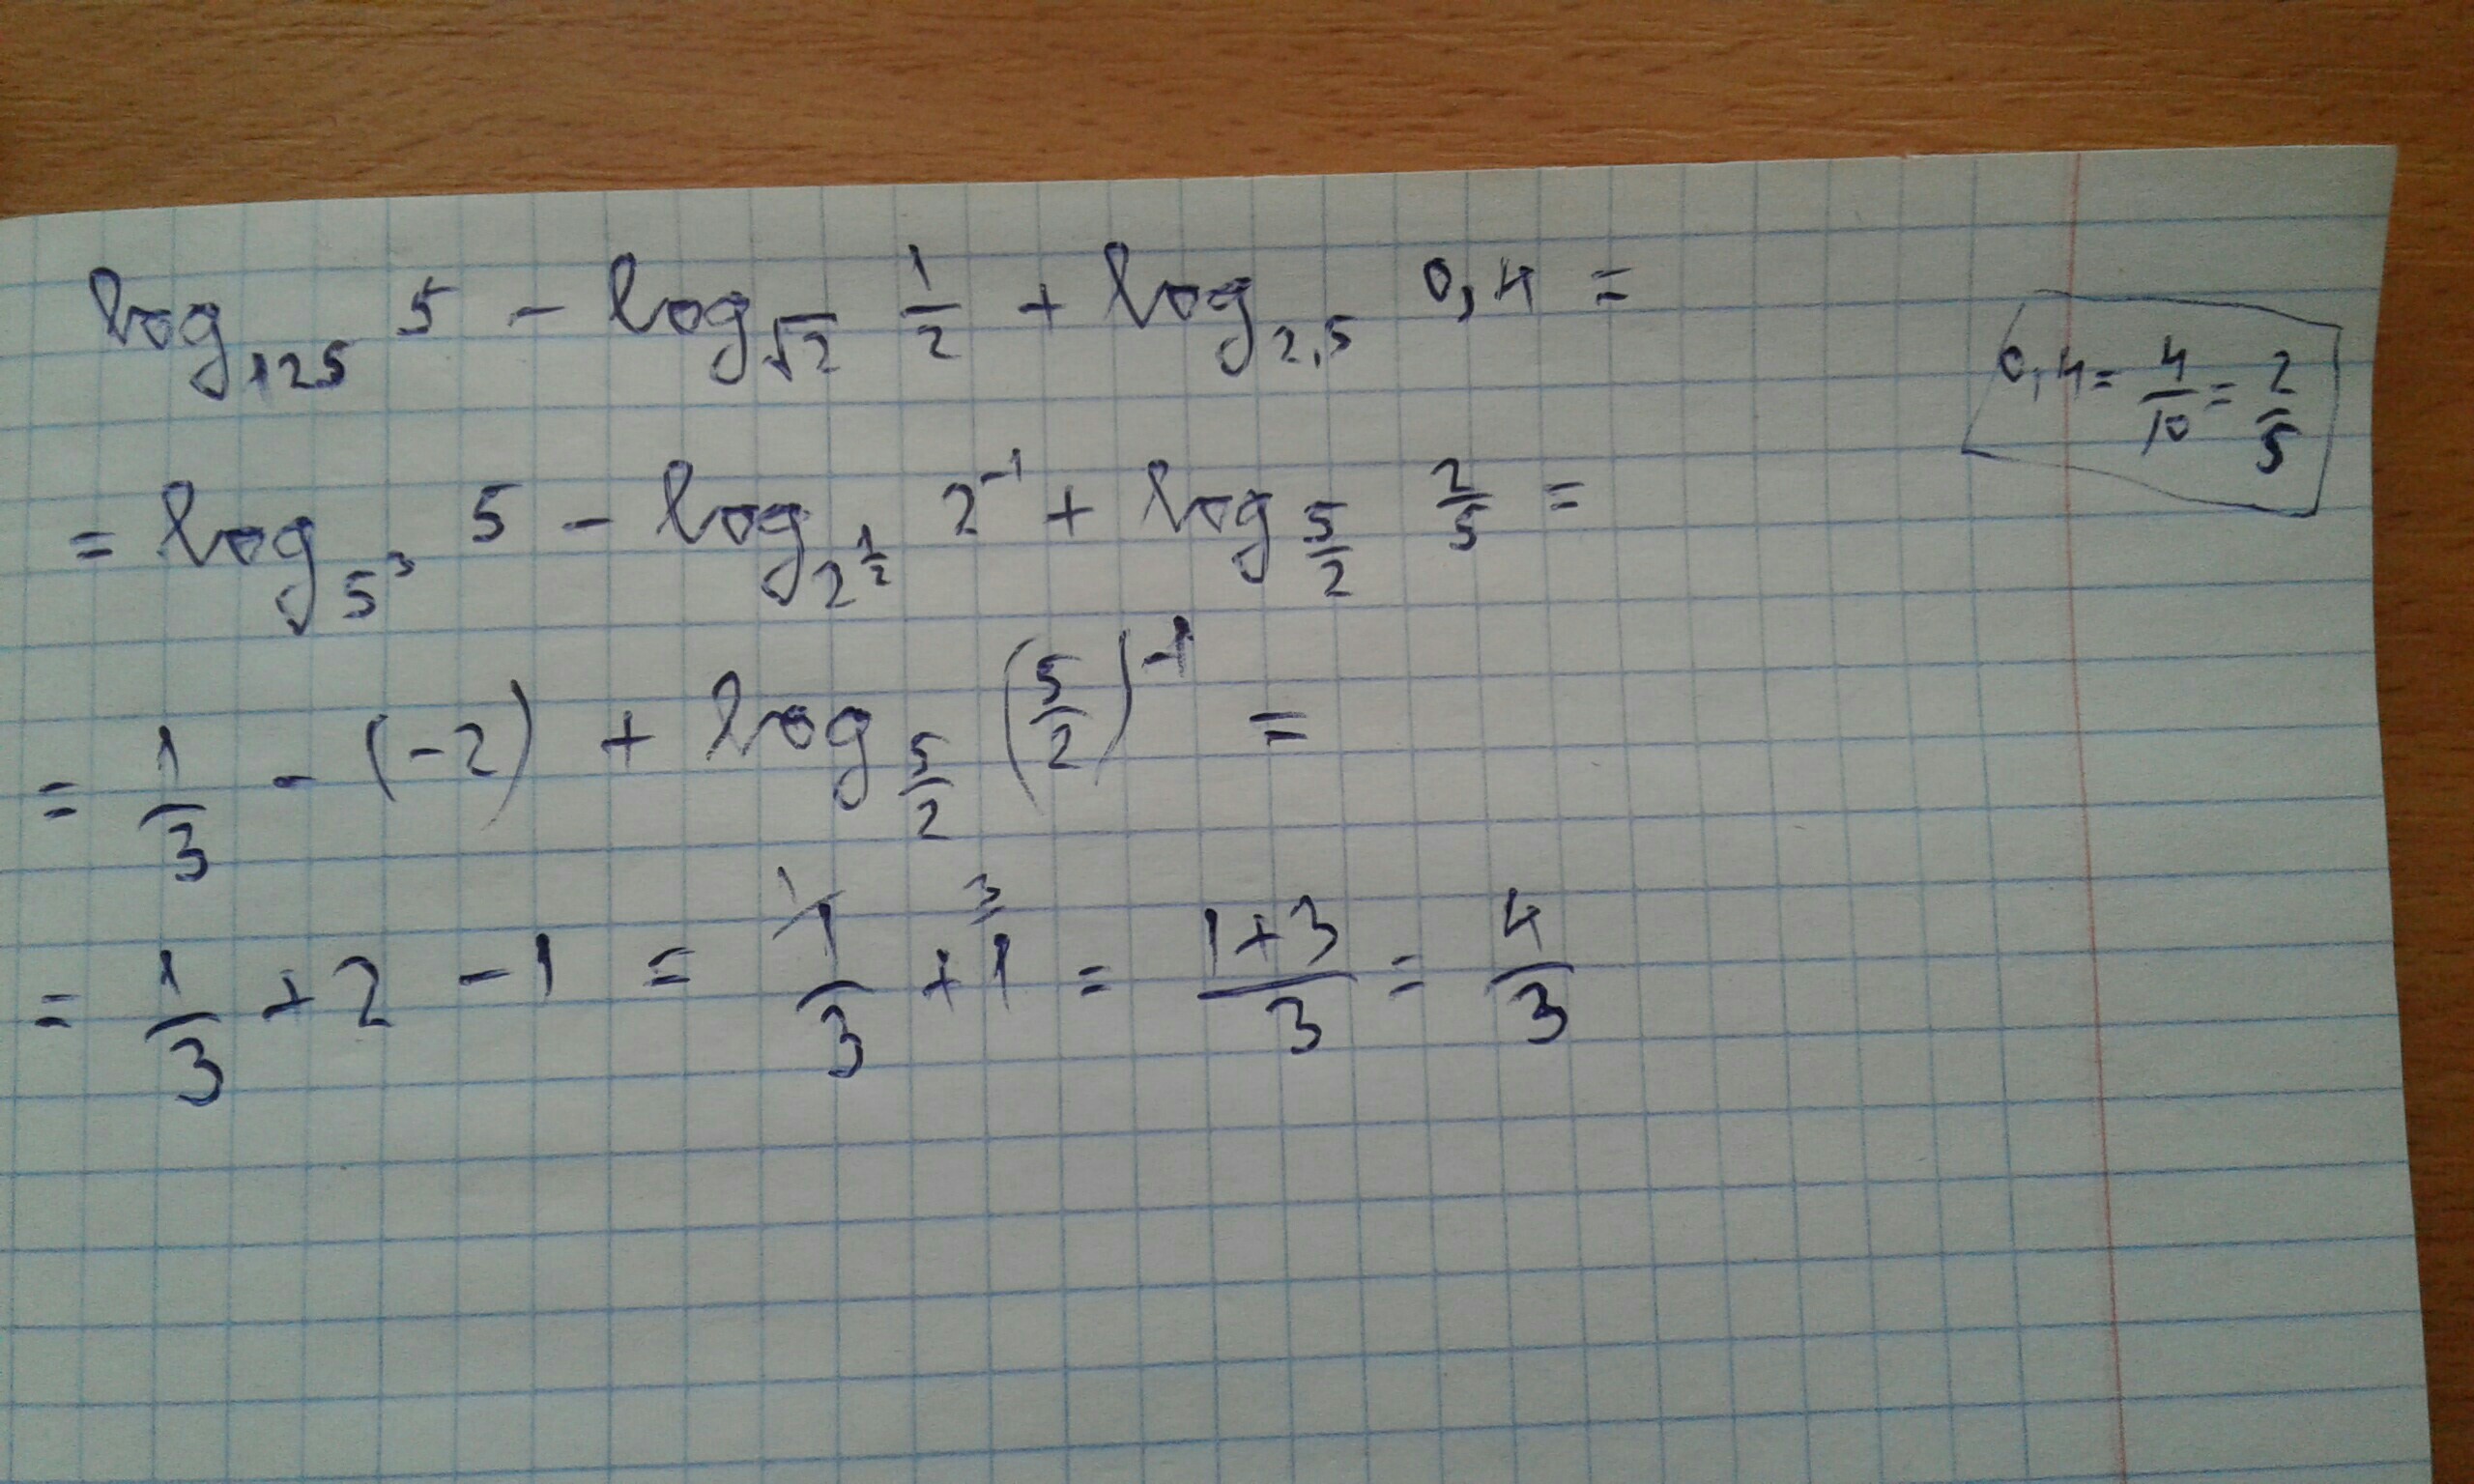 log₁₂₅ 5 − log_√2 1/2 + log₂,₅ 0,4 =
0,4 = 4/10 = 2/5
= log_5³ 5 − log_2^(1/2) 2⁻¹ + log_5/2 2/5 =
= 1/3 − (−2) + log_5/2 (5/2)⁻¹ =
= 1/3 + 2 − 1 = 1/3 + 1 = 1+3/3 = 4/3